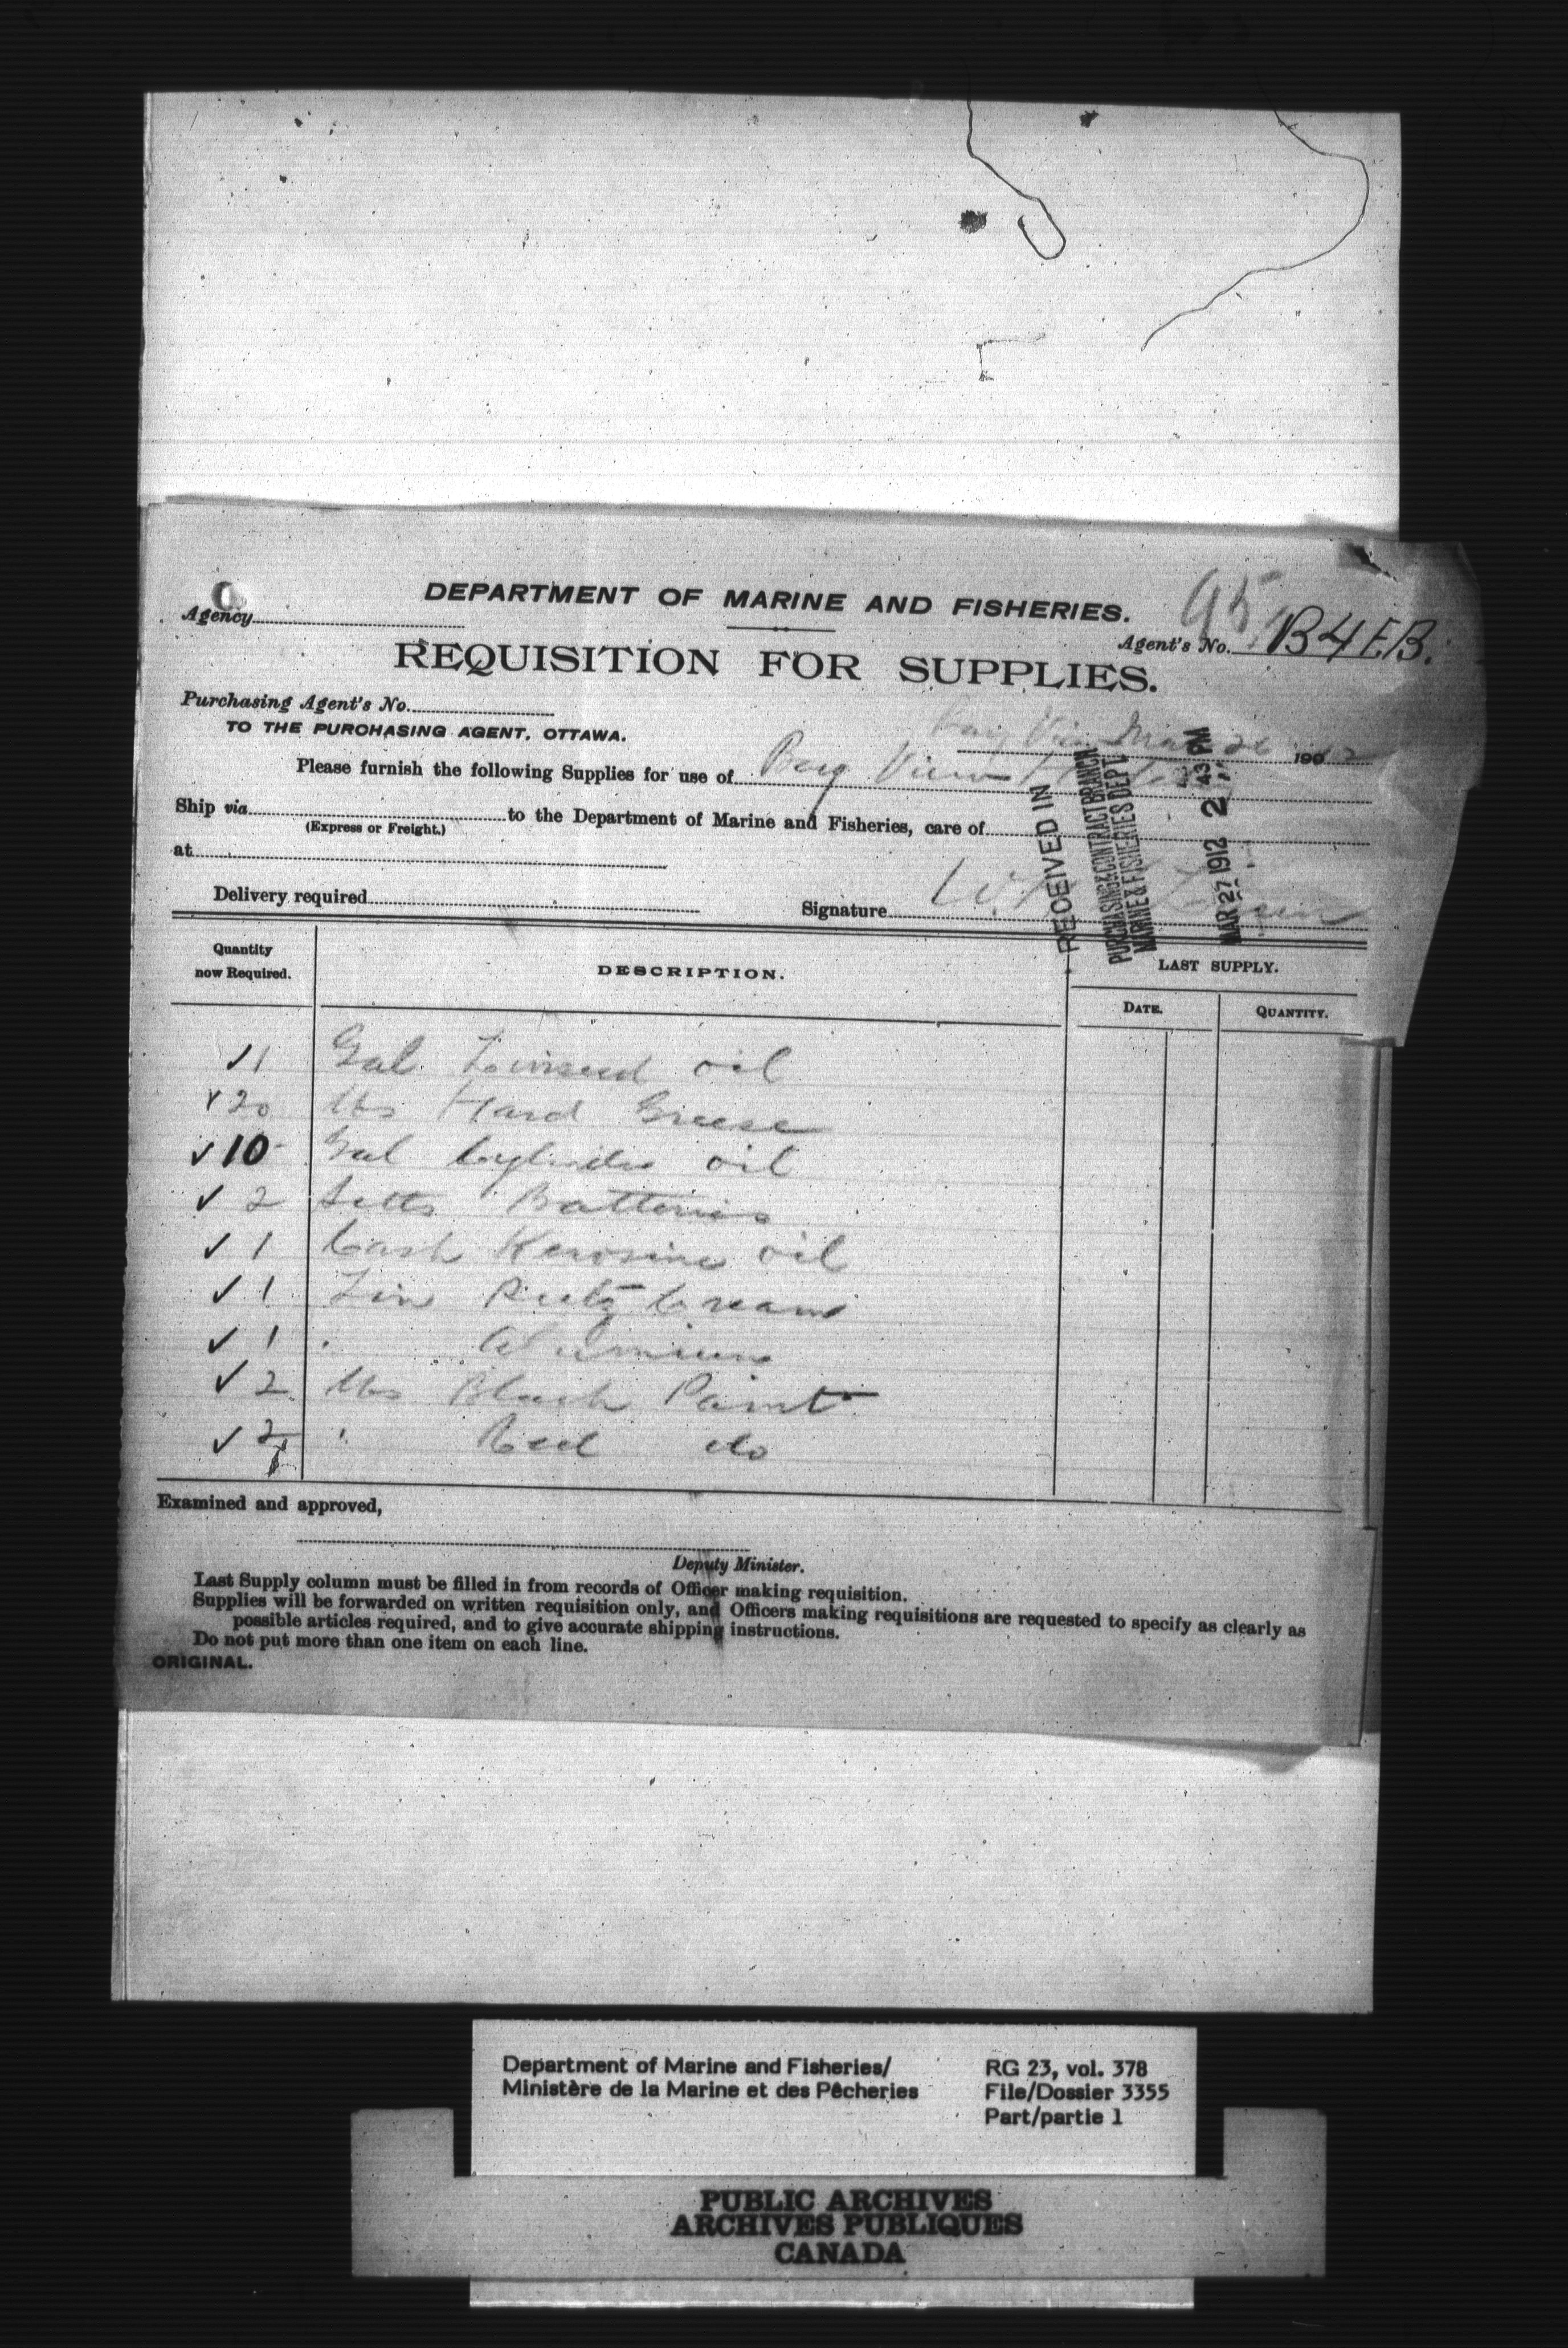 DEPARTMENT OF MARINE AND FISHERIES.
95
Agency
Agent's No. B4EB.
REQUISITION FOR SUPPLIES.
Purchasing Agent's No.
TO THE PURCHASING AGENT, OTTAWA.
Bay View Mar 26 1902
Please furnish the following Supplies for use of Bay View
Ship via to the Department of Marine and Fisheries, care of
(Express or Freight.)
at
Delivery required
Signature
RECEIVED IN
PURCHASING & CONTRACT BRANCH
MARINE & FISHERIES DEPT.
MAR 27 1912 2 43 PM
Quantity
now Required.
DESCRIPTION.
LAST SUPPLY.
DATE.
QUANTITY.
✓1 Gal Linseed oil
✓20 lbs Hard Greese
✓10 Gal Cylinder oil
✓2 Setts Batteries
✓1 Cask Kerosine oil
✓1 Tin Putz Cream
✓1 " Aluminum
✓2 lbs Black Paint
✓2 " Red do
Examined and approved,
Deputy Minister.
Last Supply column must be filled in from records of Officer making requisition.
Supplies will be forwarded on written requisition only, and Officers making requisitions are requested to specify as clearly as
possible articles required, and to give accurate shipping instructions.
Do not put more than one item on each line.
ORIGINAL.
Department of Marine and Fisheries/
Ministère de la Marine et des Pêcheries
RG 23, vol. 378
File/Dossier 3355
Part/partie 1
PUBLIC ARCHIVES
ARCHIVES PUBLIQUES
CANADA